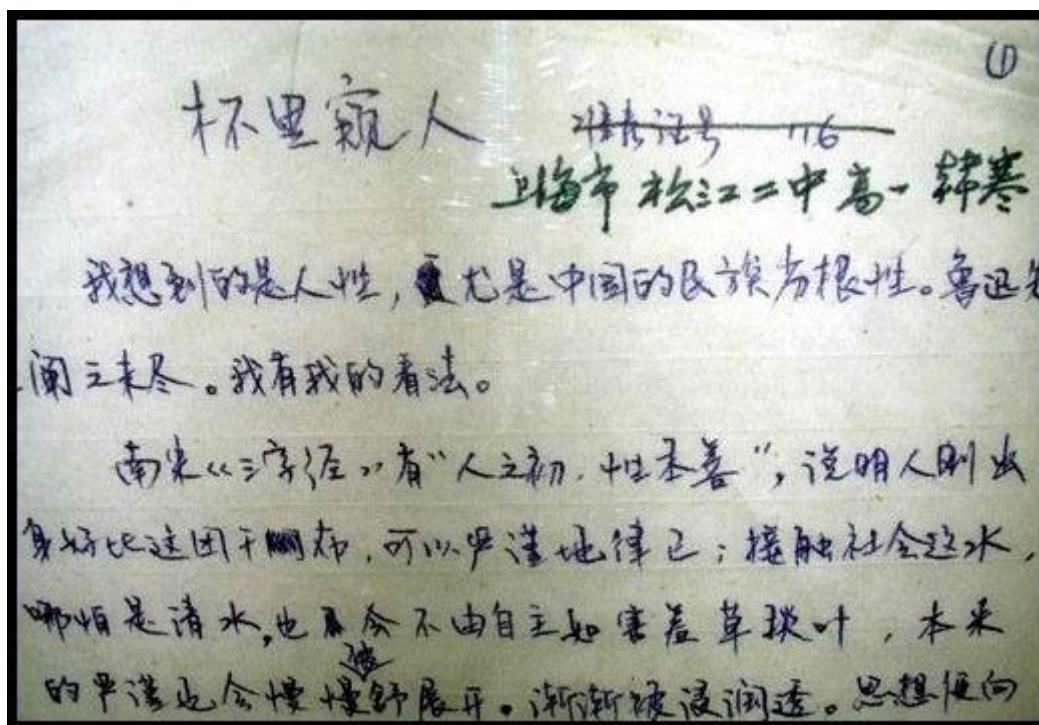 ①
杯里窥人 准考证号 116
上海市 松江二中 高一 韩寒
我想到的是人性，尤是中国的民族劣根性。鲁迅先
阐之未尽。我有我的看法。
南宋《三字经》有“人之初，性本善”，说明人刚出
身好比这团干布，可以严谨地律己；接触社会这水，
哪怕是清水，也会不由自主如害羞草掞叶，本来
的严谨也会慢慢被舒展开。渐渐被浸润透。思想便向